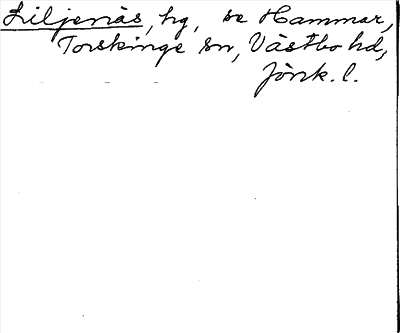 Liljenäs, hg, se Hammar,
Torskinge sn, Västbo hd,
Jönk. l.